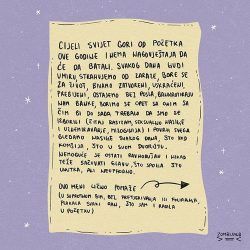 CIJELI SVIJET GORI OD POČETKA
OVE GODINE I NEMA NAGOVJEŠTAJA DA
ĆE DA BATALI. SVAKOG DANA LJUDI
UMIRU, STRAHUJEMO OD ZARAZE, BORE SE
ZA ŽIVOT, BIVAMO ZATVORENI, USKRAĆENI,
PREBIJENI, OSTAJEMO BEZ POSLA,
NAM BAUKE, BORIMO SE OPET SA ONIM SA
ČIM BI DO SADA TREBALO DA SMO SE
IZBORILI (ČITAJ RASIZAM, SEKSUALNO NASILJE
I UZNEMIRAVANJE, MIZOGINIJA) I POVRH SVEGA
GLEDAMO NASILJE SVAKOG DANA, ŠTO KOD
KOMŠIJA, ŠTO U SVOM DVORIŠTU.
NEMOGUĆE JE OSTATI RAVNODUŠAN I NEKAD
TEŽE SAČUVATI GLAVU, ŠTO SPOLJA ŠTO
UNUTRA, ALI NEOPHODNO.
OVO MENI LIČNO POMAŽE
(U SUPROTNOM BIH, BEZ PRETJERIVANJA ILI FOLIRANJA,
PLAKALA SVAKI DAN, ŠTO SAM I RADILA
U POČETKU)